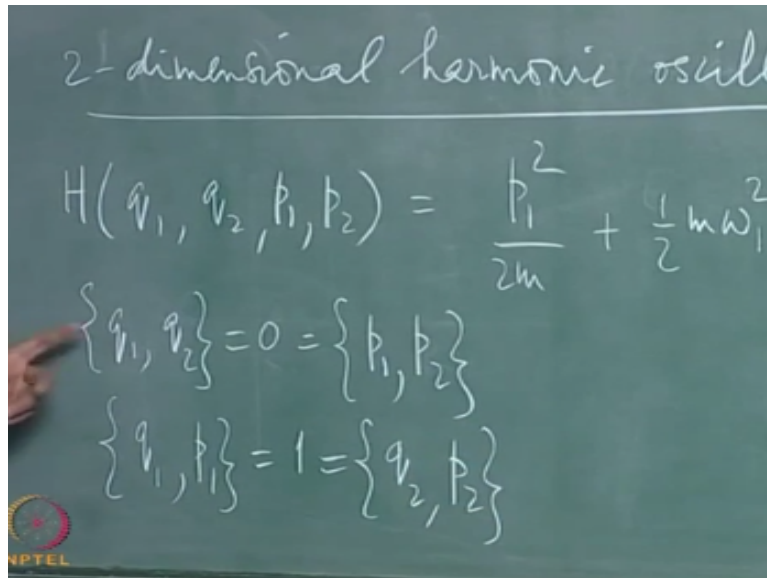 2-dimensional harmonic oscill
H(q₁, q₂, p₁, p₂) = p₁²/2m + ½ mω₁²
{q₁, q₂} = 0 = {p₁, p₂}
{q₁, p₁} = 1 = {q₂, p₂}
NPTEL